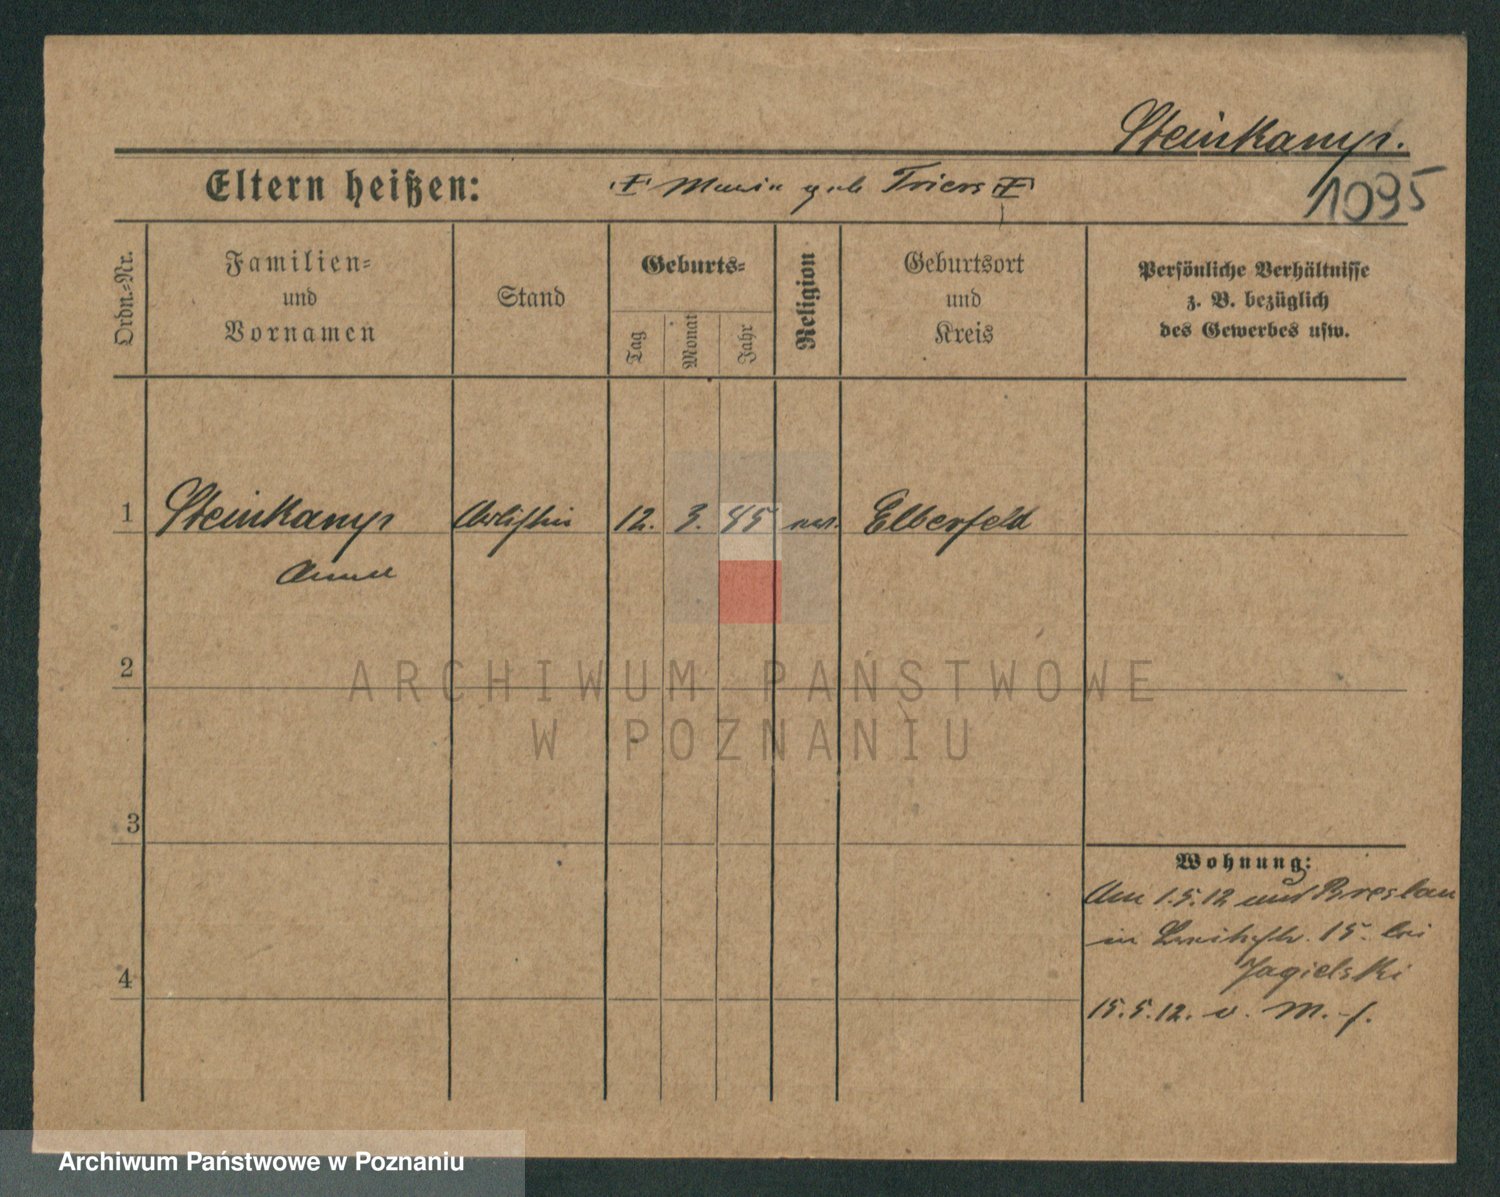 Steinkamp.
1095
Eltern heißen: Maria geb Triers
Ordn.-Nr.
Familien-
und
Vornamen
Stand
Geburts-
Tag
Monat
Jahr
Religion
Geburtsort
und
Kreis
Persönliche Verhältnisse
z. B. bezüglich
des Gewerbes usw.
1 Steinkamp Artistin 12. 3. 95 Elberfeld
Anna
2
ARCHIWUM PAŃSTWOWE
W POZNANIU
3
Wohnung:
Am 1.5.12 aus Breslau
in 15 bei
4 Jagielski
15.5.12. v. M.
Archiwum Państwowe w Poznaniu